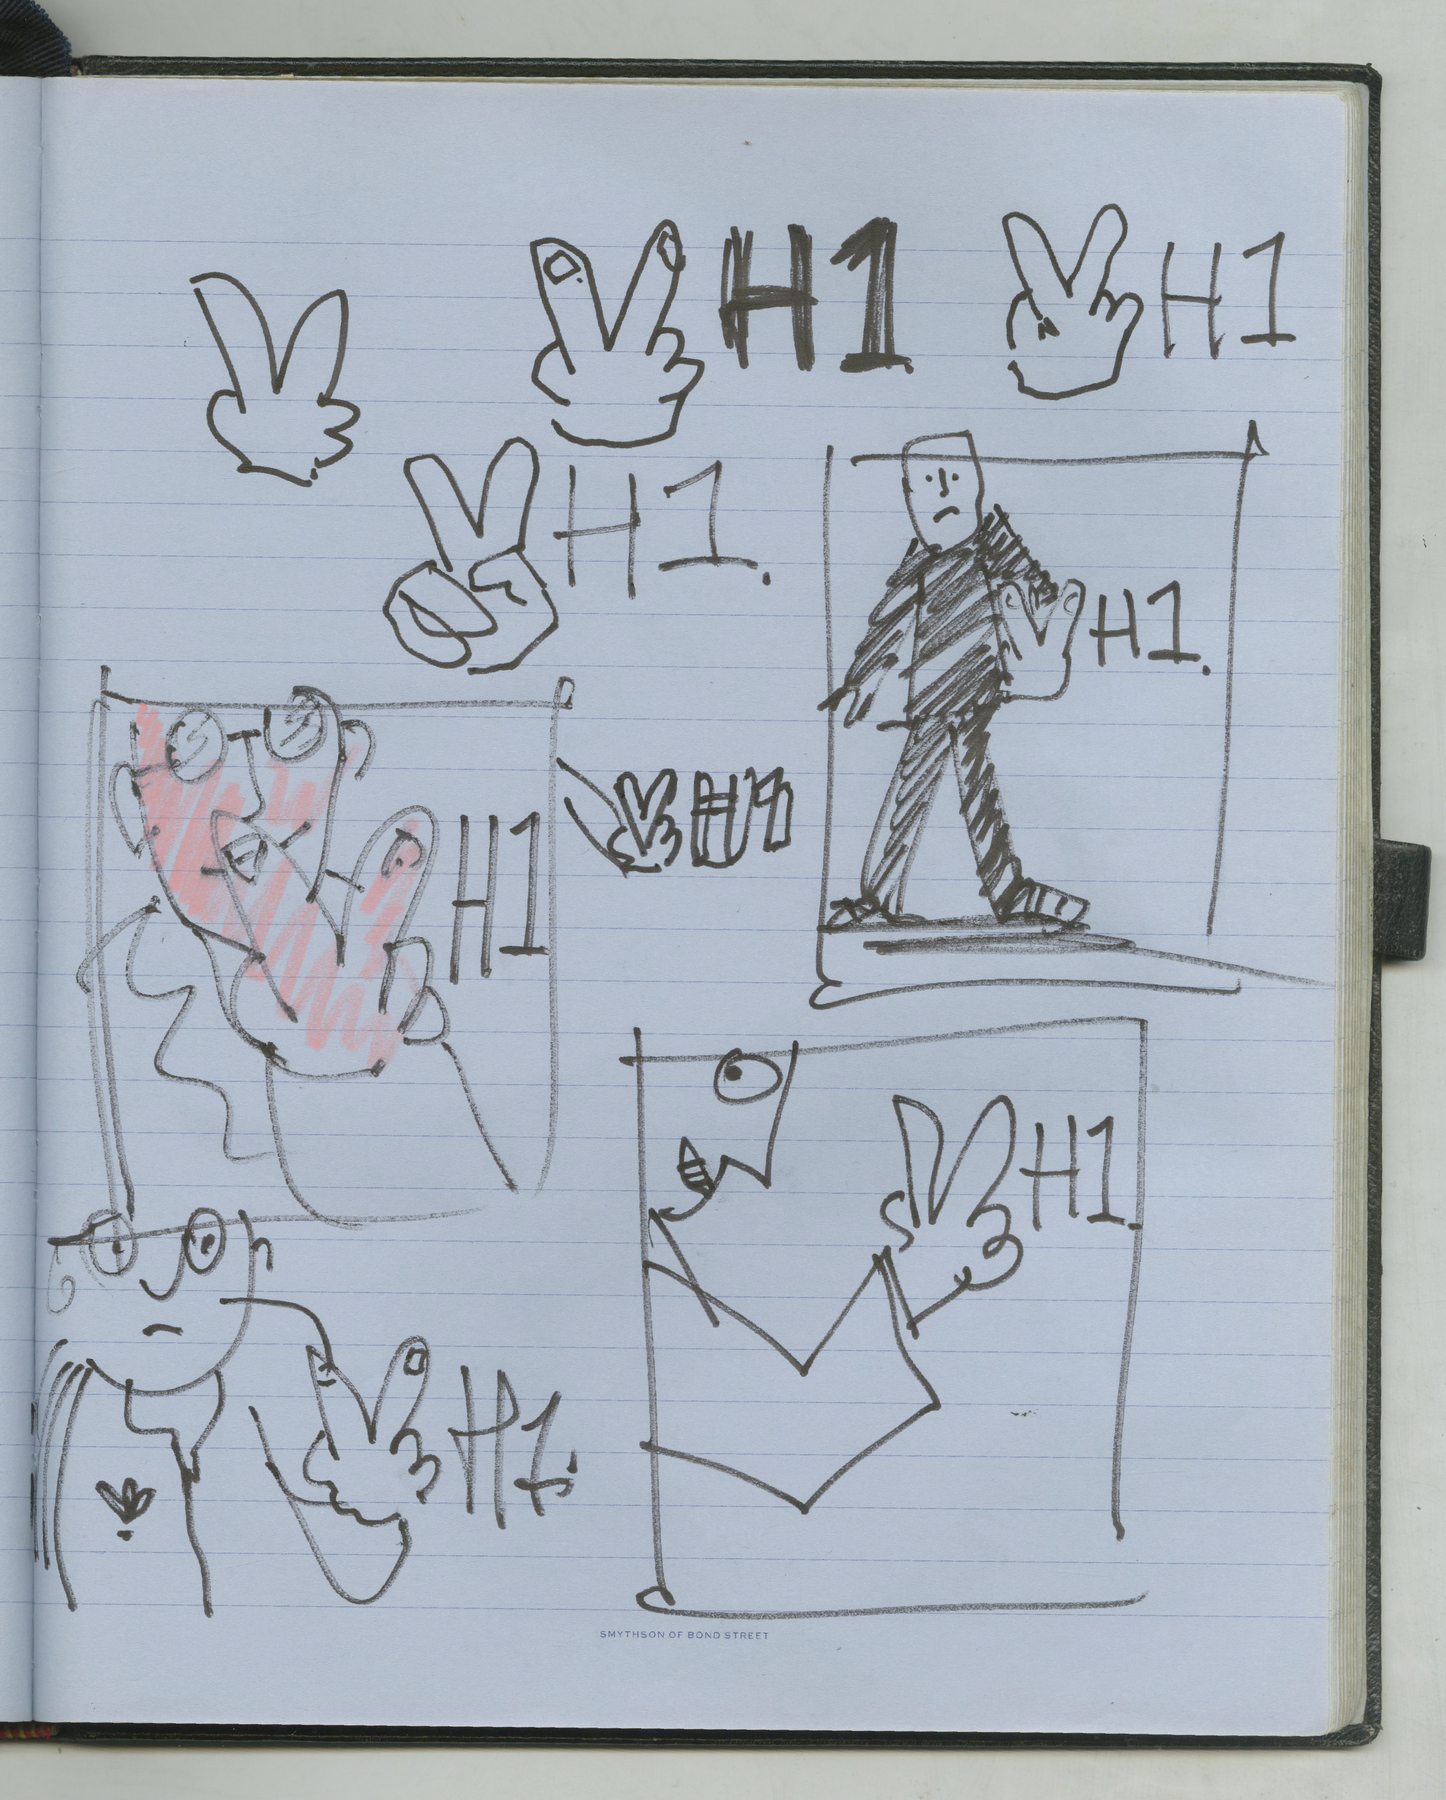 H1
H1
H1.
H1.
H1
H1
H1.
H1.
SMYTHSON OF BOND STREET